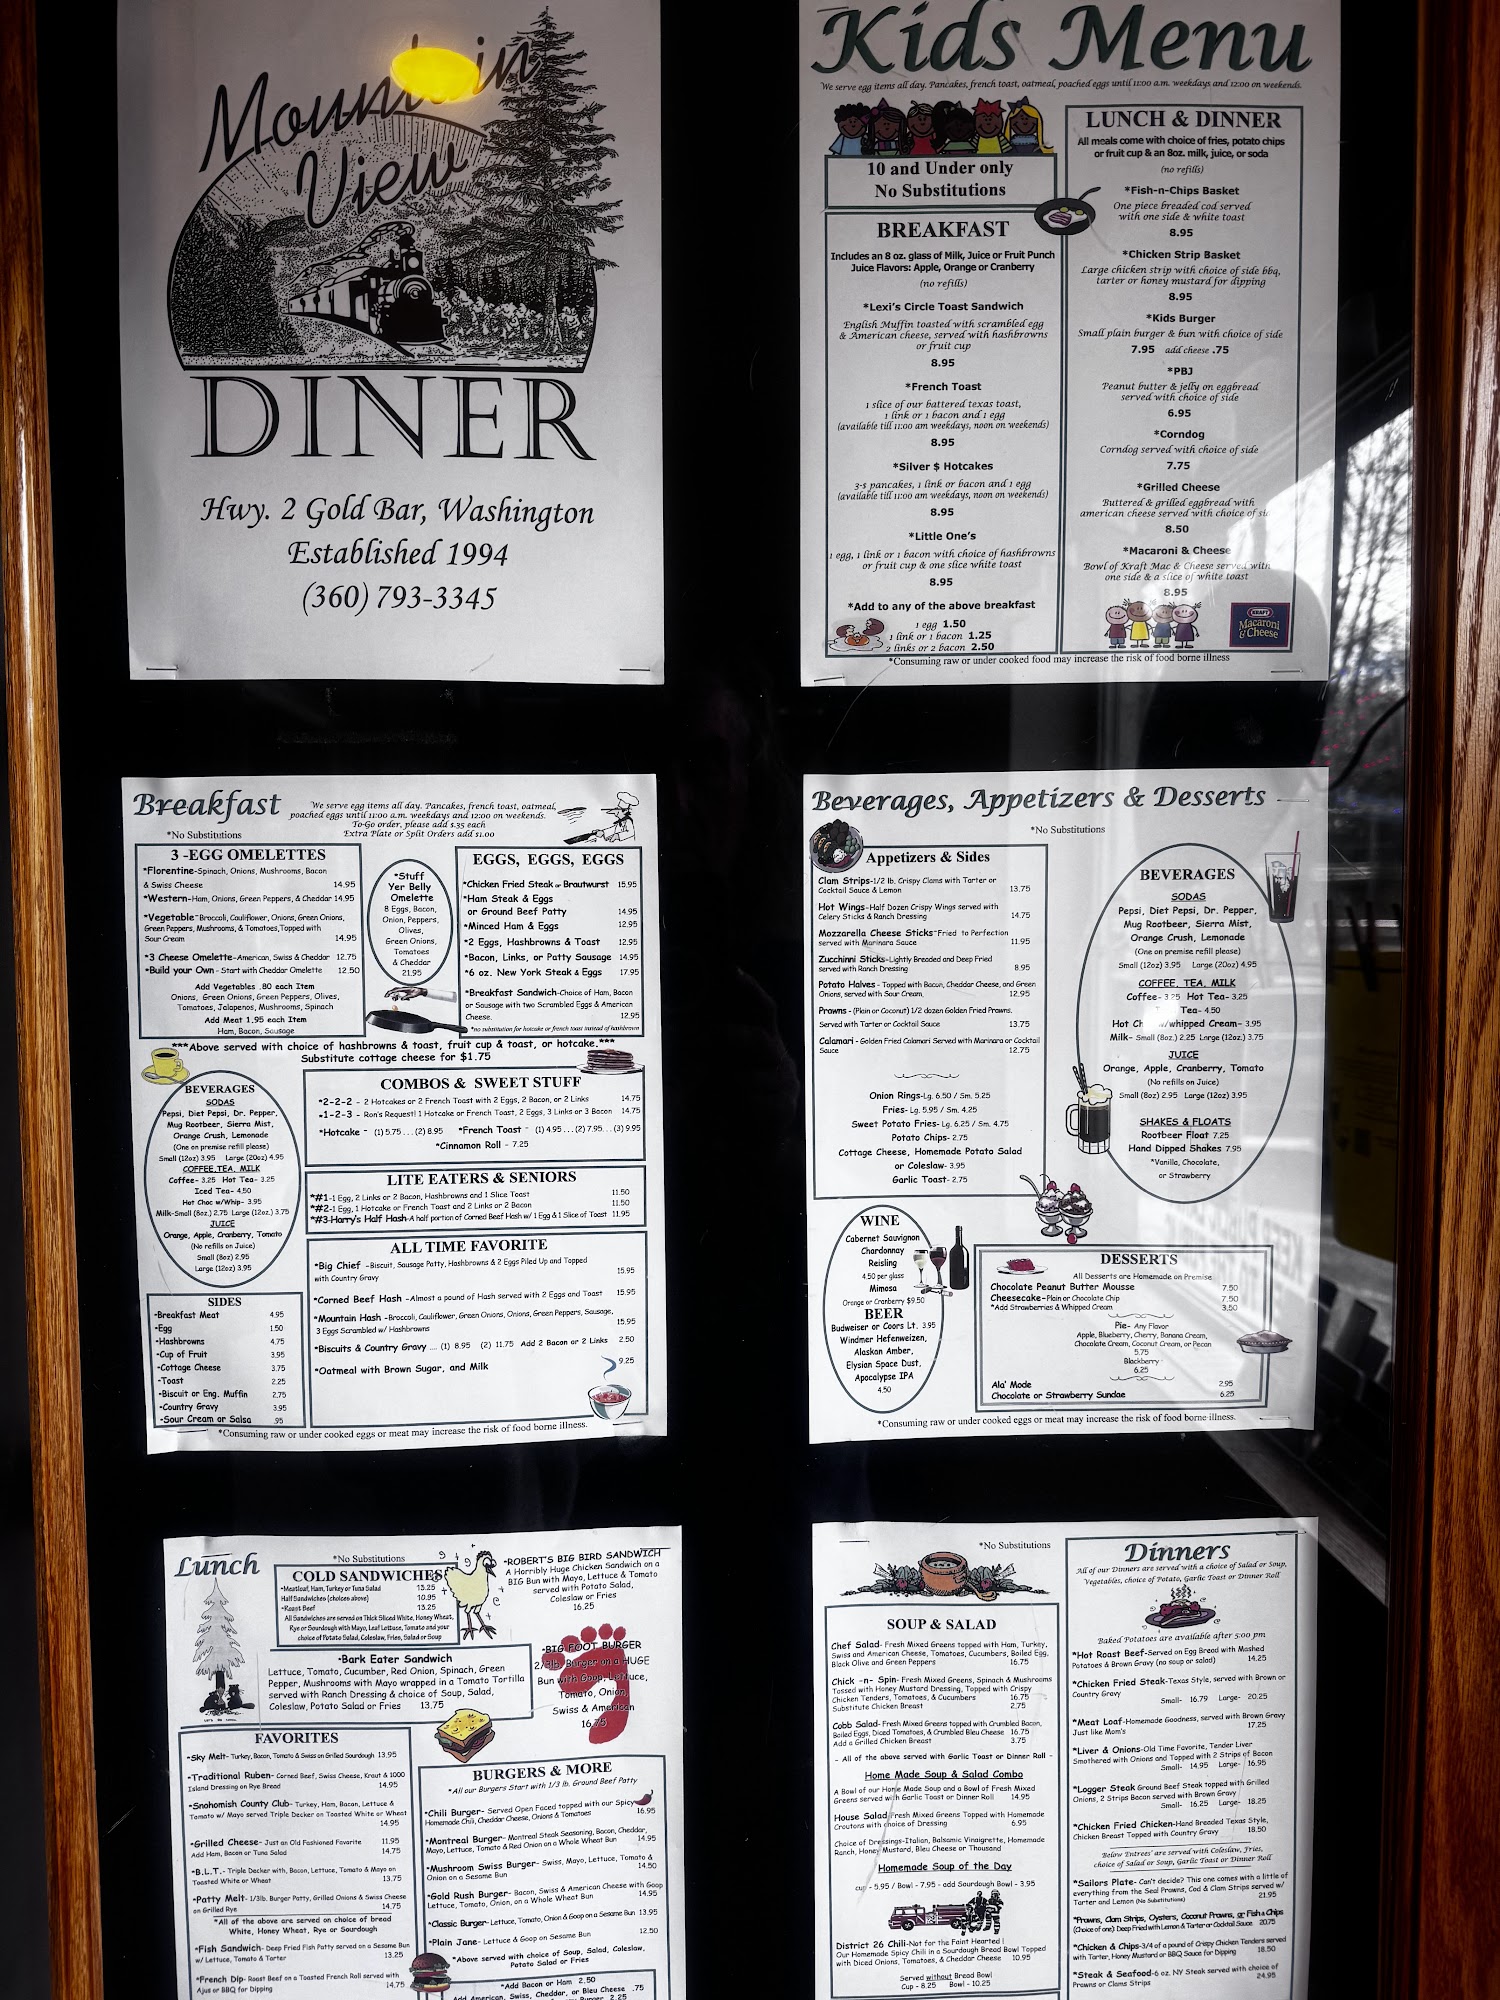 Mountain
View
DINER
Hwy. 2 Gold Bar, Washington
Established 1994
(360) 793-3345
Kids Menu
We serve egg items all day. Pancakes, french toast, oatmeal, poached eggs until 11:00 a.m. weekdays and 12:00 on weekends.
10 and Under only
No Substitutions
BREAKFAST
Includes an 8 oz. glass of Milk, Juice or Fruit Punch
Juice Flavors: Apple, Orange or Cranberry
(no refills)
*Lexi's Circle Toast Sandwich
English Muffin toasted with scrambled egg
& American cheese, served with hashbrowns
or fruit cup
8.95
*French Toast
1 slice of our battered texas toast,
1 link or 1 bacon and 1 egg
(available till 11:00 am weekdays, noon on weekends)
8.95
*Silver $ Hotcakes
3-$ pancakes, 1 link or bacon and 1 egg
(available till 11:00 am weekdays, noon on weekends)
8.95
*Little One's
1 egg, 1 link or 1 bacon with choice of hashbrowns
or fruit cup & one slice white toast
8.95
*Add to any of the above breakfast
1 egg 1.50
1 link or 1 bacon 1.25
2 links or 2 bacon 2.50
LUNCH & DINNER
All meals come with choice of fries, potato chips
or fruit cup & an 8oz. milk, juice, or soda
(no refills)
*Fish-n-Chips Basket
One piece breaded cod served
with one side & white toast
8.95
*Chicken Strip Basket
Large chicken strip with choice of side bbq,
tarter or honey mustard for dipping
8.95
*Kids Burger
Small plain burger & bun with choice of side
7.95 add cheese .75
*PBJ
Peanut butter & jelly on eggbread
served with choice of side
6.95
*Corndog
Corndog served with choice of side
7.75
*Grilled Cheese
Buttered & grilled eggbread with
american cheese served with choice of
8.50
*Macaroni & Cheese
Bowl of Kraft Mac & Cheese served with
one side & a slice of white toast
8.95
KRAFT
Macaroni
& Cheese
*Consuming raw or under cooked food may increase the risk of food borne illness
Breakfast
We serve egg items all day. Pancakes, french toast, oatmeal,
poached eggs until 11:00 a.m. weekdays and 12:00 on weekends.
To-Go order, please add $.35 each
Extra Plate or Split Orders add $1.00
*No Substitutions
3 -EGG OMELETTES
*Florentine-Spinach, Onions, Mushrooms, Bacon
& Swiss Cheese 14.95
*Western-Ham, Onions, Green Peppers, & Cheddar 14.95
*Vegetable-Broccoli, Cauliflower, Onions, Green Onions,
Green Peppers, Mushrooms, & Tomatoes,Topped with
Sour Cream 14.95
*3 Cheese Omelette-American, Swiss & Cheddar 12.75
*Build your Own - Start with Cheddar Omelette 12.50
Add Vegetables .80 each Item
Onions, Green Onions, Green Peppers, Olives,
Tomatoes, Jalapenos, Mushrooms, Spinach
Add Meat 1.95 each Item
Ham, Bacon, Sausage
*Stuff
Yer Belly
Omelette
8 Eggs, Bacon,
Onion, Peppers,
Olives,
Green Onions,
Tomatoes
& Cheddar
21.95
EGGS, EGGS, EGGS
*Chicken Fried Steak or Bratwurst 15.95
*Ham Steak & Eggs
or Ground Beef Patty 14.95
*Minced Ham & Eggs 12.95
*2 Eggs, Hashbrowns & Toast 12.95
*Bacon, Links, or Patty Sausage 14.95
*6 oz. New York Steak & Eggs 17.95
*Breakfast Sandwich-Choice of Ham, Bacon
or Sausage with two Scrambled Eggs & American
Cheese. 12.95
*no substitution for hotcake or french toast instead of hashbrown
***Above served with choice of hashbrowns & toast, fruit cup & toast, or hotcake.***
Substitute cottage cheese for $1.75
BEVERAGES
SODAS
Pepsi, Diet Pepsi, Dr. Pepper,
Mug Rootbeer, Sierra Mist,
Orange Crush, Lemonade
(One on premise refill please)
Small (12oz) 3.95 Large (20oz) 4.95
COFFEE,TEA, MILK
Coffee- 3.25 Hot Tea- 3.25
Iced Tea- 4.50
Hot Choc w/Whip- 3.95
Milk-Small (8oz.) 2.75 Large (12oz.) 3.75
JUICE
Orange, Apple, Cranberry, Tomato
(No refills on Juice)
Small (8oz) 2.95
Large (12oz) 3.95
COMBOS & SWEET STUFF
*2-2-2 - 2 Hotcakes or 2 French Toast with 2 Eggs, 2 Bacon, or 2 Links 14.75
*1-2-3 - Ron's Request! 1 Hotcake or French Toast, 2 Eggs, 3 Links or 3 Bacon 14.75
*Hotcake - (1) 5.75 ... (2) 8.95 *French Toast - (1) 4.95 ... (2) 7.95 ... (3) 9.95
*Cinnamon Roll - 7.25
LITE EATERS & SENIORS
*#1-1 Egg, 2 Links or 2 Bacon, Hashbrowns and 1 Slice Toast 11.50
*#2-1 Egg, 1 Hotcake or French Toast and 2 Links or 2 Bacon 11.50
*#3-Harry's Half Hash-A half portion of Corned Beef Hash w/ 1 Egg & 1 Slice of Toast 11.95
ALL TIME FAVORITE
*Big Chief -Biscuit, Sausage Patty, Hashbrowns & 2 Eggs Piled Up and Topped
with Country Gravy 15.95
*Corned Beef Hash -Almost a pound of Hash served with 2 Eggs and Toast 15.95
*Mountain Hash -Broccoli, Cauliflower, Green Onions, Onions, Green Peppers, Sausage,
3 Eggs Scrambled w/ Hashbrowns 15.95
*Biscuits & Country Gravy .... (1) 8.95 (2) 11.75 Add 2 Bacon or 2 Links 2.50
*Oatmeal with Brown Sugar, and Milk 9.25
SIDES
*Breakfast Meat 4.95
*Egg 1.50
*Hashbrowns 4.75
*Cup of Fruit 3.95
*Cottage Cheese 3.75
*Toast 2.25
*Biscuit or Eng. Muffin 2.75
*Country Gravy 3.95
*Sour Cream or Salsa .95
*Consuming raw or under cooked eggs or meat may increase the risk of food borne illness.
Beverages, Appetizers & Desserts
*No Substitutions
Appetizers & Sides
Clam Strips-1/2 lb. Crispy Clams with Tarter or
Cocktail Sauce & Lemon 13.75
Hot Wings-Half Dozen Crispy Wings served with
Celery Sticks & Ranch Dressing 14.75
Mozzarella Cheese Sticks-Fried to Perfection
served with Marinara Sauce 11.95
Zucchinni Sticks-Lightly Breaded and Deep Fried
served with Ranch Dressing 8.95
Potato Halves - Topped with Bacon, Cheddar Cheese, and Green
Onions, served with Sour Cream. 12.95
Prawns - (Plain or Coconut) 1/2 dozen Golden Fried Prawns,
Served with Tarter or Cocktail Sauce 13.75
Calamari - Golden Fried Calamari Served with Marinara or Cocktail
Sauce 12.75
Onion Rings-Lg. 6.50 / Sm. 5.25
Fries-Lg. 5.95 / Sm. 4.25
Sweet Potato Fries-Lg. 6.25 / Sm. 4.75
Potato Chips- 2.75
Cottage Cheese, Homemade Potato Salad
or Coleslaw- 3.95
Garlic Toast- 2.75
BEVERAGES
SODAS
Pepsi, Diet Pepsi, Dr. Pepper,
Mug Rootbeer, Sierra Mist,
Orange Crush, Lemonade
(One on premise refill please)
Small (12oz) 3.95 Large (20oz) 4.95
COFFEE, TEA, MILK
Coffee- 3.25 Hot Tea- 3.25
Tea- 4.50
Hot w/whipped Cream- 3.95
Milk- Small (8oz.) 2.25 Large (12oz.) 3.75
JUICE
Orange, Apple, Cranberry, Tomato
(No refills on Juice)
Small (8oz) 2.95 Large (12oz) 3.95
SHAKES & FLOATS
Rootbeer Float 7.25
Hand Dipped Shakes 7.95
*Vanilla, Chocolate,
or Strawberry
WINE
Cabernet Sauvignon
Chardonnay
Reisling
4.50 per glass
Mimosa
Orange or Cranberry $9.50
BEER
Budweiser or Coors Lt. 3.95
Windmer Hefenweizen,
Alaskan Amber,
Elysian Space Dust,
Apocalypse IPA
4.50
DESSERTS
All Desserts are Homemade on Premise
Chocolate Peanut Butter Mousse 7.50
Cheesecake-Plain or Chocolate Chip 7.50
*Add Strawberries & Whipped Cream 3.50
Pie- Any Flavor
Apple, Blueberry, Cherry, Banana Cream,
Chocolate Cream, Coconut Cream, or Pecan
5.75
Blackberry
6.25
Ala' Mode 2.95
Chocolate or Strawberry Sundae 6.25
*Consuming raw or under cooked eggs or meat may increase the risk of food borne illness.
Lunch
*No Substitutions
COLD SANDWICHES
*Meatloaf, Ham, Turkey or Tuna Salad 13.25
Half Sandwiches (choices above) 10.95
*Roast Beef 13.25
All Sandwiches are served on Thick Sliced White, Honey Wheat,
Rye or Sourdough with Mayo, Leaf Lettuce, Tomato and your
choice of Potato Salad, Coleslaw, Fries, Salad or Soup
*ROBERT'S BIG BIRD SANDWICH
A Horribly Huge Chicken Sandwich on a
BIG Bun with Mayo, Lettuce & Tomato
served with Potato Salad,
Coleslaw or Fries
16.25
*Bark Eater Sandwich
Lettuce, Tomato, Cucumber, Red Onion, Spinach, Green
Pepper, Mushrooms with Mayo wrapped in a Tomato Tortilla
served with Ranch Dressing & choice of Soup, Salad,
Coleslaw, Potato Salad or Fries 13.75
*BIG FOOT BURGER
2/3lb. Burger on a HUGE
Bun with Goop, Lettuce,
Tomato, Onion,
Swiss & American
16.75
FAVORITES
*Sky Melt- Turkey, Bacon, Tomato & Swiss on Grilled Sourdough 13.95
*Traditional Ruben- Corned Beef, Swiss Cheese, Kraut & 1000
Island Dressing on Rye Bread 14.95
*Snohomish County Club- Turkey, Ham, Bacon, Lettuce &
Tomato w/ Mayo served Triple Decker on Toasted White or Wheat
14.95
*Grilled Cheese- Just an Old Fashioned Favorite 11.95
Add Ham, Bacon or Tuna Salad 14.75
*B.L.T.- Triple Decker with, Bacon, Lettuce, Tomato & Mayo on
Toasted White or Wheat 13.75
*Patty Melt- 1/3lb. Burger Patty, Grilled Onions & Swiss Cheese
on Grilled Rye 14.75
*All of the above are served on choice of bread
White, Honey Wheat, Rye or Sourdough
*Fish Sandwich- Deep Fried Fish Patty served on a Sesame Bun
w/ Lettuce, Tomato & Tarter 13.25
*French Dip- Roast Beef on a Toasted French Roll served with
Ajus or BBQ for Dipping 14.75
BURGERS & MORE
*All our Burgers Start with 1/3 lb. Ground Beef Patty
*Chili Burger- Served Open Faced topped with our Spicy
Homemade Chili, Cheddar Cheese, Onions & Tomatoes 16.95
*Montreal Burger- Montreal Steak Seasoning, Bacon, Cheddar,
Mayo, Lettuce, Tomato & Red Onion on a Whole Wheat Bun 14.95
*Mushroom Swiss Burger- Swiss, Mayo, Lettuce, Tomato &
Onion on a Sesame Bun 14.50
*Gold Rush Burger- Bacon, Swiss & American Cheese with Goop
Lettuce, Tomato, Onion, on a Whole Wheat Bun 14.95
*Classic Burger-Lettuce, Tomato, Onion & Goop on a Sesame Bun 13.95
*Plain Jane- Lettuce & Goop on Sesame Bun 12.50
*Above served with choice of Soup, Salad, Coleslaw,
Potato Salad or Fries
*Add Bacon or Ham 2.50
Add American, Swiss, Cheddar, or Bleu Cheese .75
*No Substitutions
SOUP & SALAD
Chef Salad- Fresh Mixed Greens topped with Ham, Turkey,
Swiss and American Cheese, Tomatoes, Cucumbers, Boiled Egg,
Black Olive and Green Peppers 16.75
Chick -n- Spin- Fresh Mixed Greens, Spinach & Mushrooms
Tossed with Honey Mustard Dressing, Topped with Crispy
Chicken Tenders, Tomatoes, & Cucumbers 16.75
Substitute Chicken Breast 2.75
Cobb Salad- Fresh Mixed Greens topped with Crumbled Bacon,
Boiled Eggs, Diced Tomatoes, & Crumbled Bleu Cheese 16.75
Add a Grilled Chicken Breast 3.75
- All of the above served with Garlic Toast or Dinner Roll -
Home Made Soup & Salad Combo
A Bowl of our Home Made Soup and a Bowl of Fresh Mixed
Greens served with Garlic Toast or Dinner Roll 14.95
House Salad-Fresh Mixed Greens Topped with Homemade
Croutons with choice of Dressing 6.95
Choice of Dressings-Italian, Balsamic Vinaigrette, Homemade
Ranch, Honey Mustard, Bleu Cheese or Thousand
Homemade Soup of the Day
cup - 5.95 / Bowl - 7.95 - add Sourdough Bowl - 3.95
District 26 Chili-Not for the Faint Hearted !
Our Homemade Spicy Chili in a Sourdough Bread Bowl Topped
with Diced Onions, Tomatoes, & Cheddar Cheese 10.95
Served without Bread Bowl
Cup - 8.25 Bowl - 10.25
Dinners
All of our Dinners are served with a choice of Salad or Soup,
Vegetables, choice of Potato, Garlic Toast or Dinner Roll
Baked Potatoes are available after 5:00 pm
*Hot Roast Beef-Served on Egg Bread with Mashed
Potatoes & Brown Gravy (no soup or salad) 14.25
*Chicken Fried Steak-Texas Style, served with Brown or
Country Gravy
Small- 16.79 Large- 20.25
*Meat Loaf-Homemade Goodness, served with Brown Gravy
Just like Mom's 17.25
*Liver & Onions-Old Time Favorite, Tender Liver
Smothered with Onions and Topped with 2 Strips of Bacon
Small- 14.95 Large- 16.95
*Logger Steak Ground Beef Steak topped with Grilled
Onions, 2 Strips Bacon served with Brown Gravy
Small- 16.25 Large- 18.25
*Chicken Fried Chicken-Hand Breaded Texas Style,
Chicken Breast Topped with Country Gravy 18.50
Below Entrees' are served with Coleslaw, Fries,
choice of Salad or Soup, Garlic Toast or Dinner Roll
*Sailors Plate- Can't decide? This one comes with a little of
everything from the Sea! Prawns, Cod & Clam Strips served w/
Tarter and Lemon (No Substitutions) 21.95
*Prawns, Clam Strips, Oysters, Coconut Prawns, or Fish & Chips
(Choice of one) Deep Fried with Lemon & Tarter or Cocktail Sauce 20.75
*Chicken & Chips-3/4 of a pound of Crispy Chicken Tenders served
with Tarter, Honey Mustard or BBQ Sauce for Dipping 18.50
*Steak & Seafood-6 oz. NY Steak served with choice of
Prawns or Clams Strips 24.95